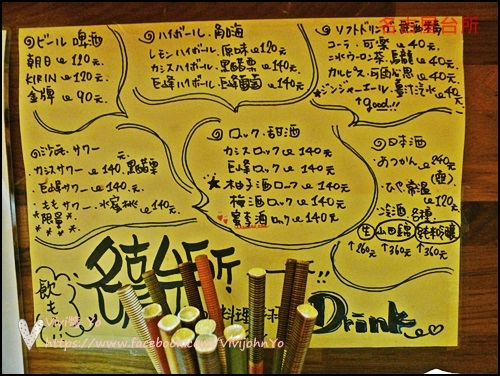 ◎ビール 啤酒
朝日 @120元
KIRIN @120元
金牌 @ 90元
◎ハイボール.角嗨
レモンハイボール.原味@120元
カシスハイボール.黑醋栗@140元
巨峰ハイボール.巨峰葡萄@140元
◎ソフトドリンク
コーラ・可樂 @40元
烏龍 @40元
カルピス・可爾必思 @40元
★ジンジャーエール・薑汁汽水@40元
↑good!!
◎沙瓦・サワー
カシスサワー @140元.黑醋栗
巨峰サワー @140元
ももサワー.水蜜桃 @140元
★限量★
◎ロック・甜酒
カシスロック@140元
巨峰ロック@140元
★柚子酒ロック@140元
梅酒ロック@140元
ロック@140元
◎日本酒
あつかん @240元
常溫 @120元
冷酒各種
↑260元 ↑360元 ↑360元
名古屋台所!
飲も
料理
Drink
Vivi
https://www.facebook.com/VivijohnYo